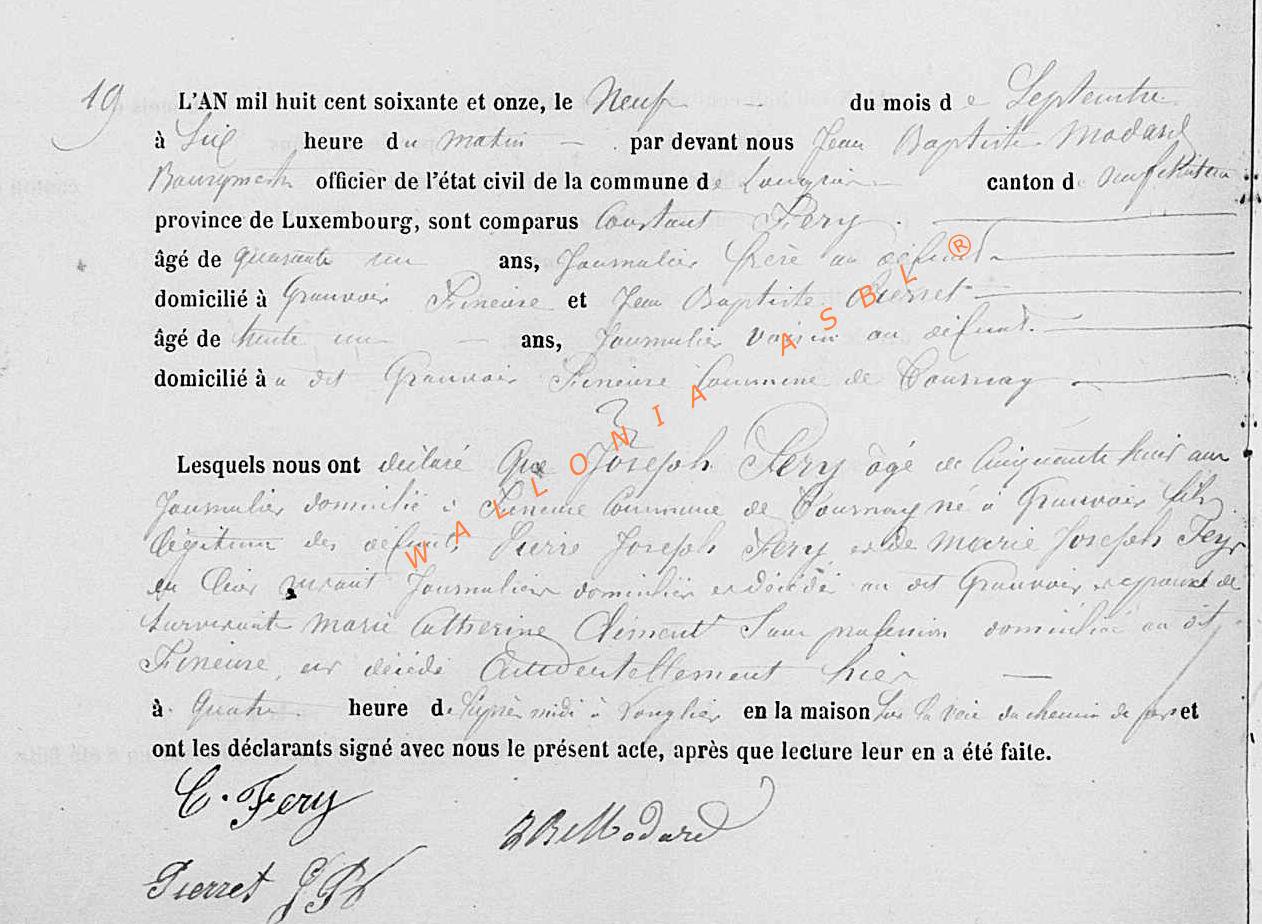 19
L'AN mil huit cent soixante et onze, le Neuf du mois de Septembre
à Six heure du matin par devant nous Jean Baptiste Modard
Bourgmestre officier de l'état civil de la commune de Longlier canton de Neufchâteau
province de Luxembourg, sont comparus Constant Fery
âgé de quarante un ans, Journalier frère au défunt
domicilié à Grauvoir Fineuse et Jean Baptiste Pierret
âgé de trente un ans, Journalier voisin au défunt
domicilié à au dit Grauvoir Fineuse Commune de Tournay
Lesquels nous ont déclaré Que Joseph Fery âgé de Cinquante huit ans
Journalier domicilié à Fineuse Commune de Tournay né à Grauvoir fils
légitime des défunts Pierre Joseph Fery et de Marie Joseph Fery
en leur vivant Journaliers domiciliés et décédés au dit Grauvoir époux de
survivante Marie Catherine Clément Sans profession domiciliée au dit
Fineuse, est décédé Accidentellement hier
à Quatre heure de l'après midi à Longlier en la maison Sur la voie du chemin de fer et
ont les déclarants signé avec nous le présent acte, après que lecture leur en a été faite.
C. Fery
JB Modard
Pierret J Bte
WALLONIA ASBL ®